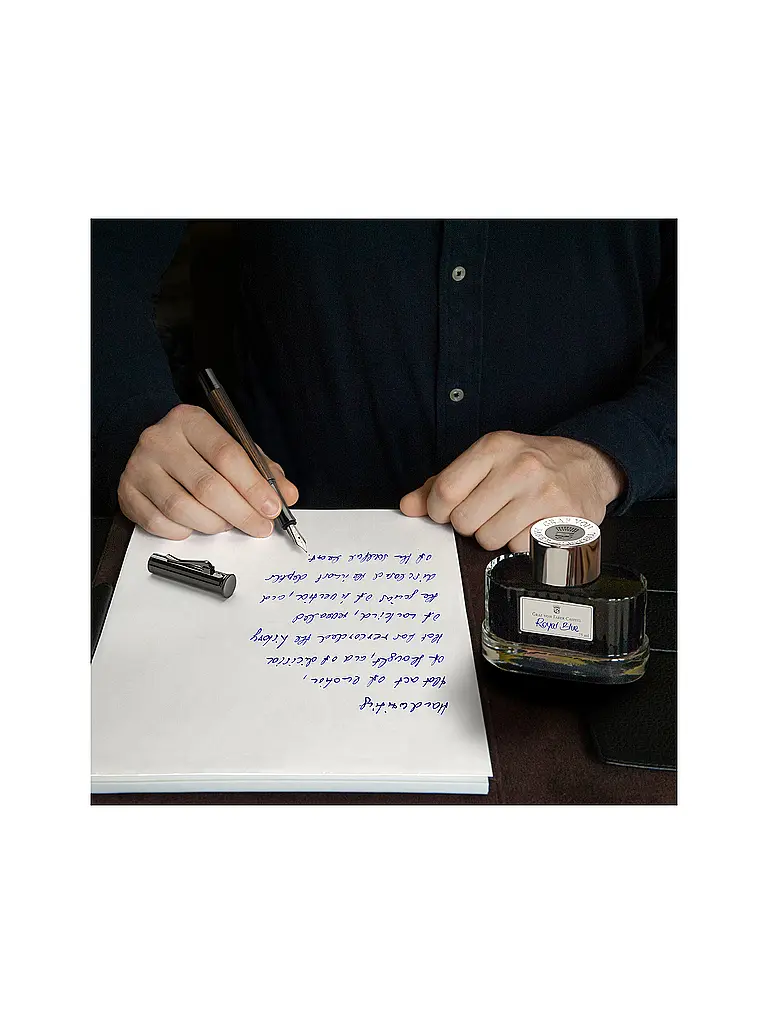 Handwriting
that act of emotion,
of thought, and of decision
that has recorded the history
of mankind, revealed
the genius of invention, and
disclosed the inmost depths
of the soulful heart
GRAF VON
GRAF VON FABER-CASTELL
Royal Blue
75 ml